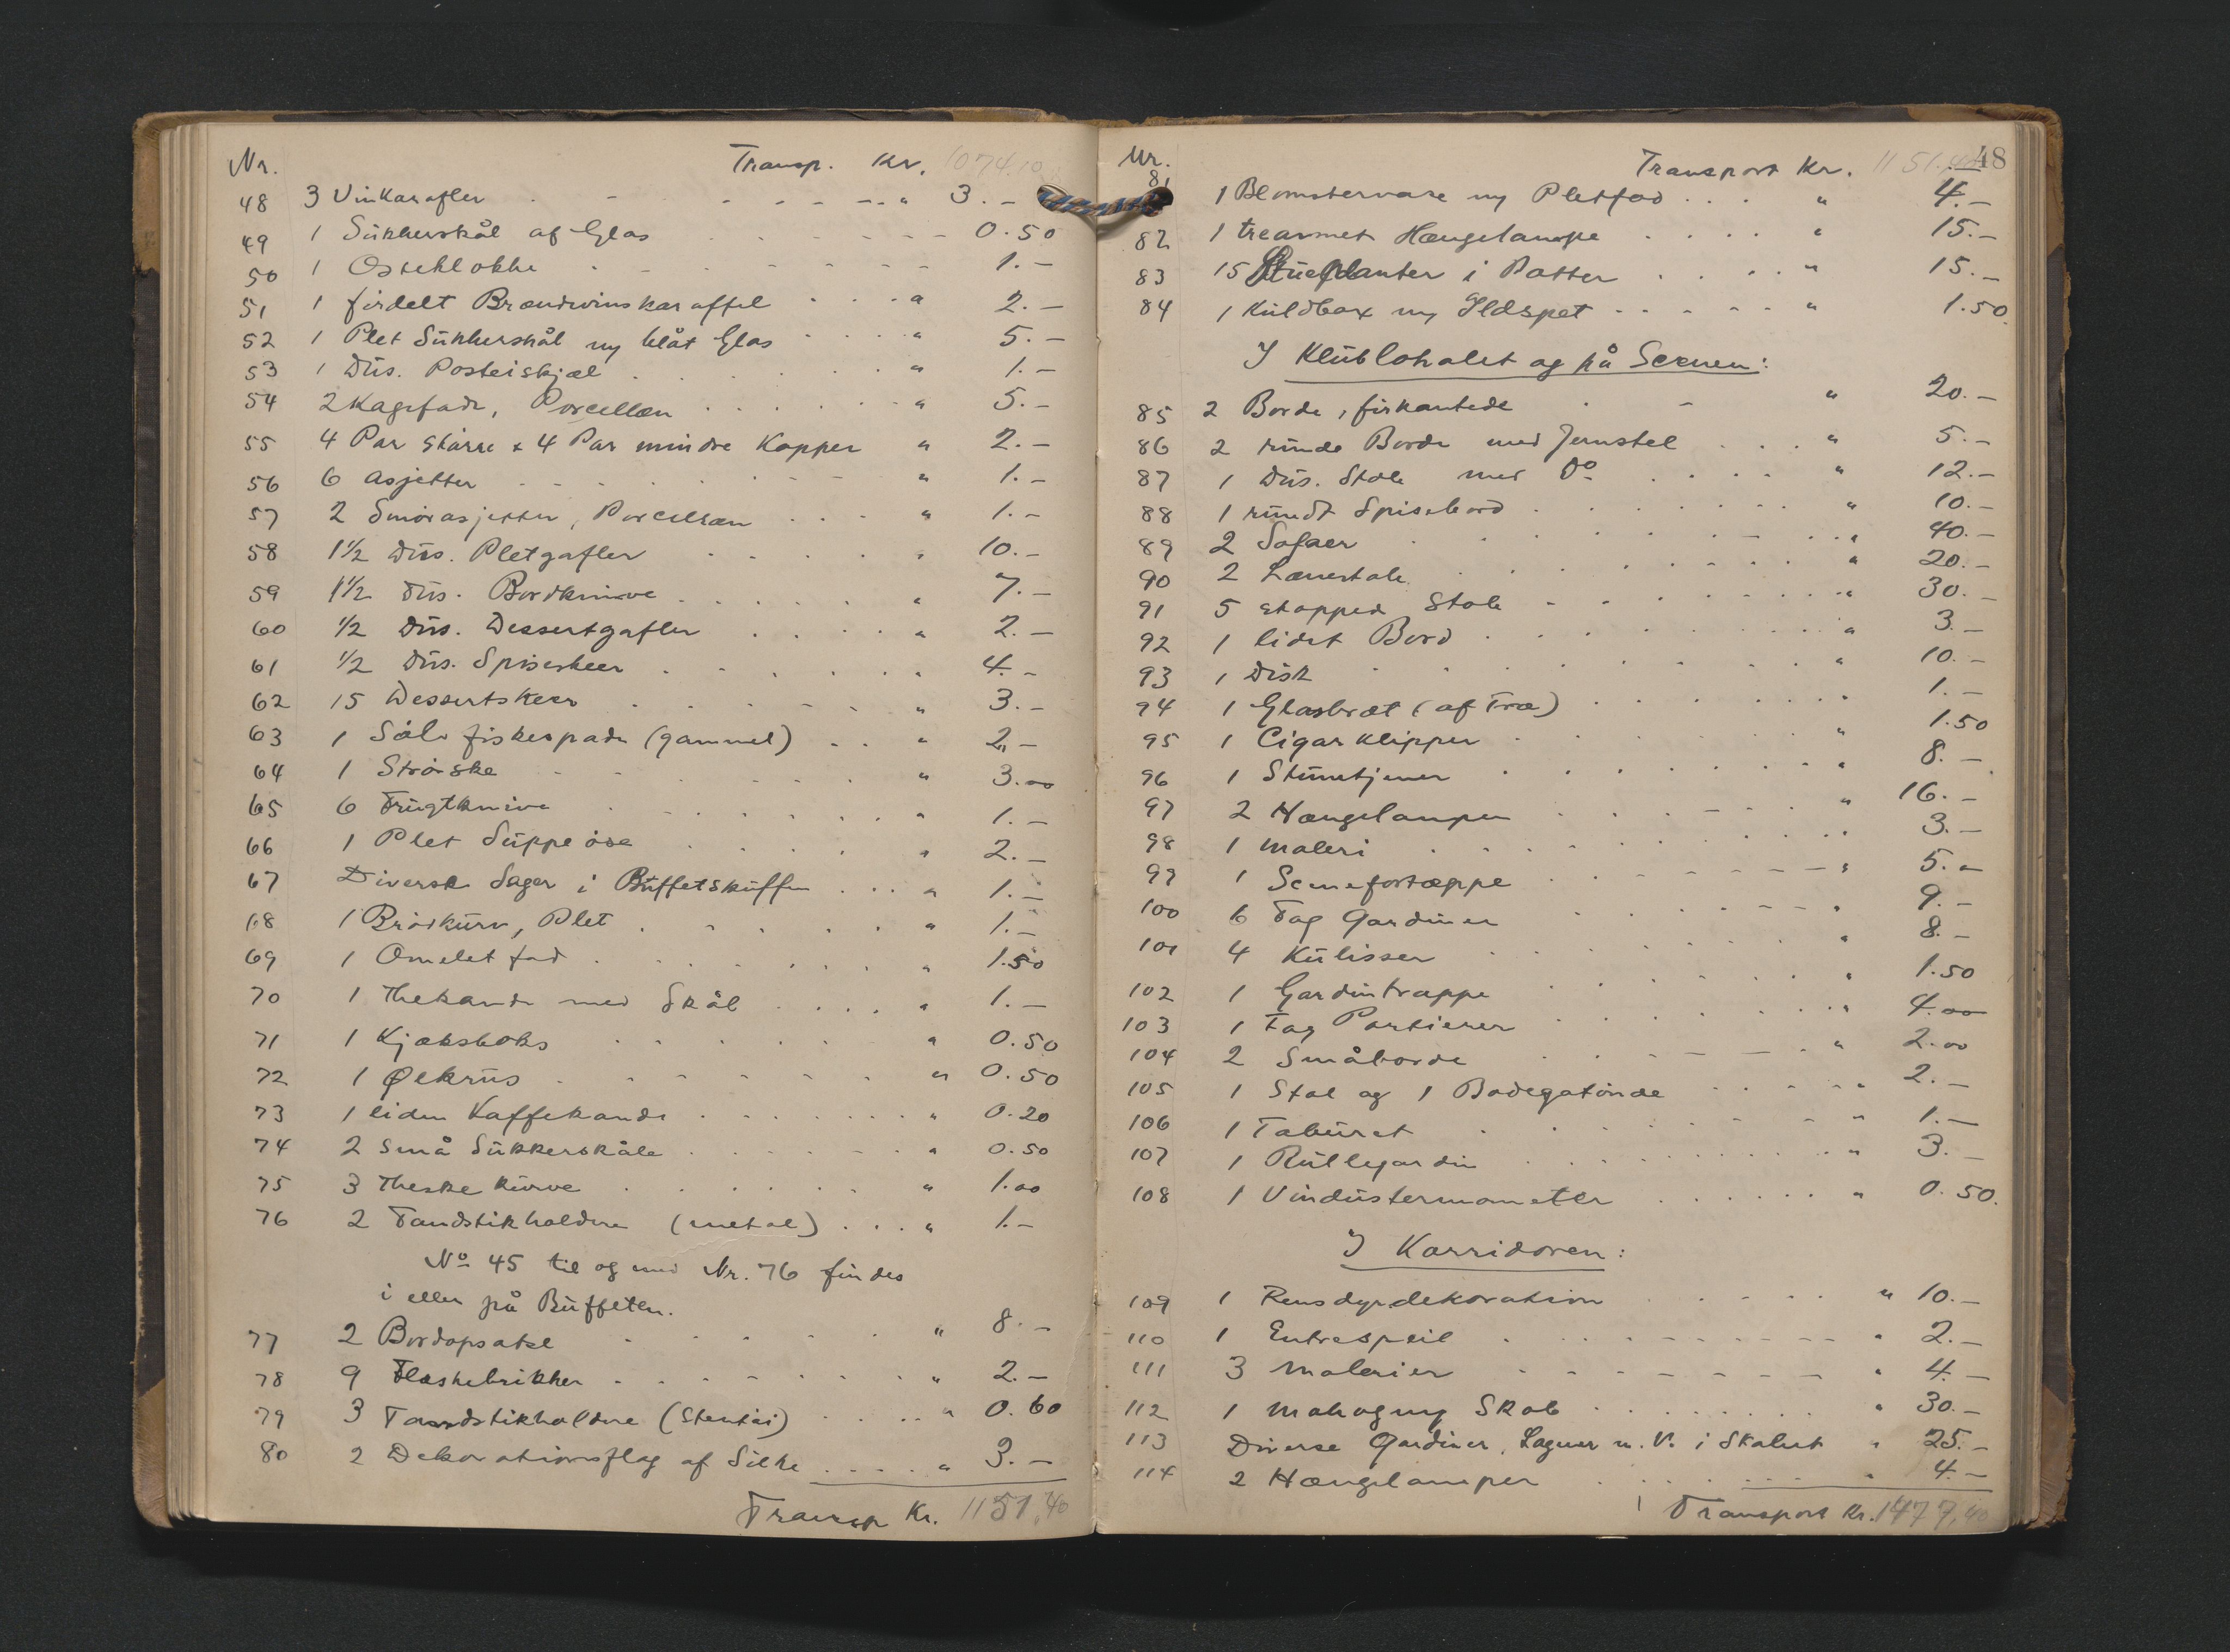 Nr. Transp. Kr. 1074.10
48 3 Vinkarafler " 3.—
49 1 Sukkerskål af Glas 0.50
50 1 Osteklokke 1.—
51 1 firdelt Brændevinskaraffel " 2.—
52 1 Plet Sukkerskål m/ blåt Glas " 5.—
53 1 Dus. Posteiskjæl " 1.—
54 2 Kagefade, Porcellæn " 5.—
55 4 Par større & 4 Par mindre Kopper " 2.—
56 6 Asjetter " 1.—
57 2 Smørasjetter, Porcellæn " 1.—
58 1½ Dus. Pletgafler " 10.—
59 1½ Dus. Bordknive " 7.—
60 ½ Dus. Dessertgafler " 2.—
61 ½ Dus. Spiseskeer " 4.—
62 15 Dessertskeer " 3.—
63 1 Sølv fiskespade (gammel) " 2.—
64 1 Strøske " 3.00
65 6 Frugtknive " 1.—
66 1 Plet Suppeøse " 2.—
67 Diverse Sager i Buffetskuffen " 1.—
68 1 Brødkurv, Plet " 1.—
69 1 Omeletfad " 1.50
70 1 Thekande med Skål " 1.—
71 1 Kjæksboks " 0.50
72 1 Ølkrus " 0.50
73 1 liden Kaffekande " 0.20
74 2 små Sukkerskåle " 0.50
75 3 Theskekurve " 1.00
76 2 Tandstikholdere (metal) " 1.—
No 45 til og med Nr. 76 findes
i eller på Buffeten.
77 2 Bordopsatse " 8.—
78 9 Flaskebrikker " 2.—
79 3 Tandstikholdere (Stentøi) " 0.60
80 2 Dekorationsflag af Silke " 3.—
Transp Kr. 1151,40
48
Nr. Transport Kr. 1151.40
81 1 Blomstervase m/ Pletfod " 4.—
82 1 trearmet Hængelampe " 15.—
83 15 Stueplanter i Potter " 15.—
84 1 Kuldbox m/ Ildspet " 1.50
I Klublokalet og på Scenen:
85 2 Borde, firkantede " 20.—
86 2 runde Borde med Jernstel " 5.—
87 1 Dus. Stole med Do " 12.—
88 1 rundt Spisebord " 10.—
89 2 Sofaer " 40.—
90 2 Lænestole " 20.—
91 5 stoppede Stole " 30.—
92 1 lidet Bord " 3.—
93 1 Disk " 10.—
94 1 Glasbræt (af Træ) " 1.—
95 1 Cigarklipper " 1.50
96 1 Stumtjener " 8.—
97 2 Hængelamper " 16.—
98 1 Maleri " 3.—
99 1 Scenefortæppe " 5.—
100 6 Fag Gardiner " 9.—
101 4 Kulisser " 8.—
102 1 Gardintrappe " 1.50
103 1 Fag Portierer " 4.00
104 2 Småborde " 2.00
105 1 Stol og 1 Bodegatønde " 2.—
106 1 Taburet " 1.—
107 1 Rullegardin " 3.—
108 1 Vindustermometer " 0.50.
I Korridoren:
109 1 Rensdyrdekoration " 10.—
110 1 Entrespeil " 2.—
111 3 Malerier " 4.—
112 1 Mahogny Skab " 30.—
113 Diverse Gardiner, Lagner m.V. i Skabet " 25.—
114 2 Hængelamper " 4.—
Transport Kr. 1477,40